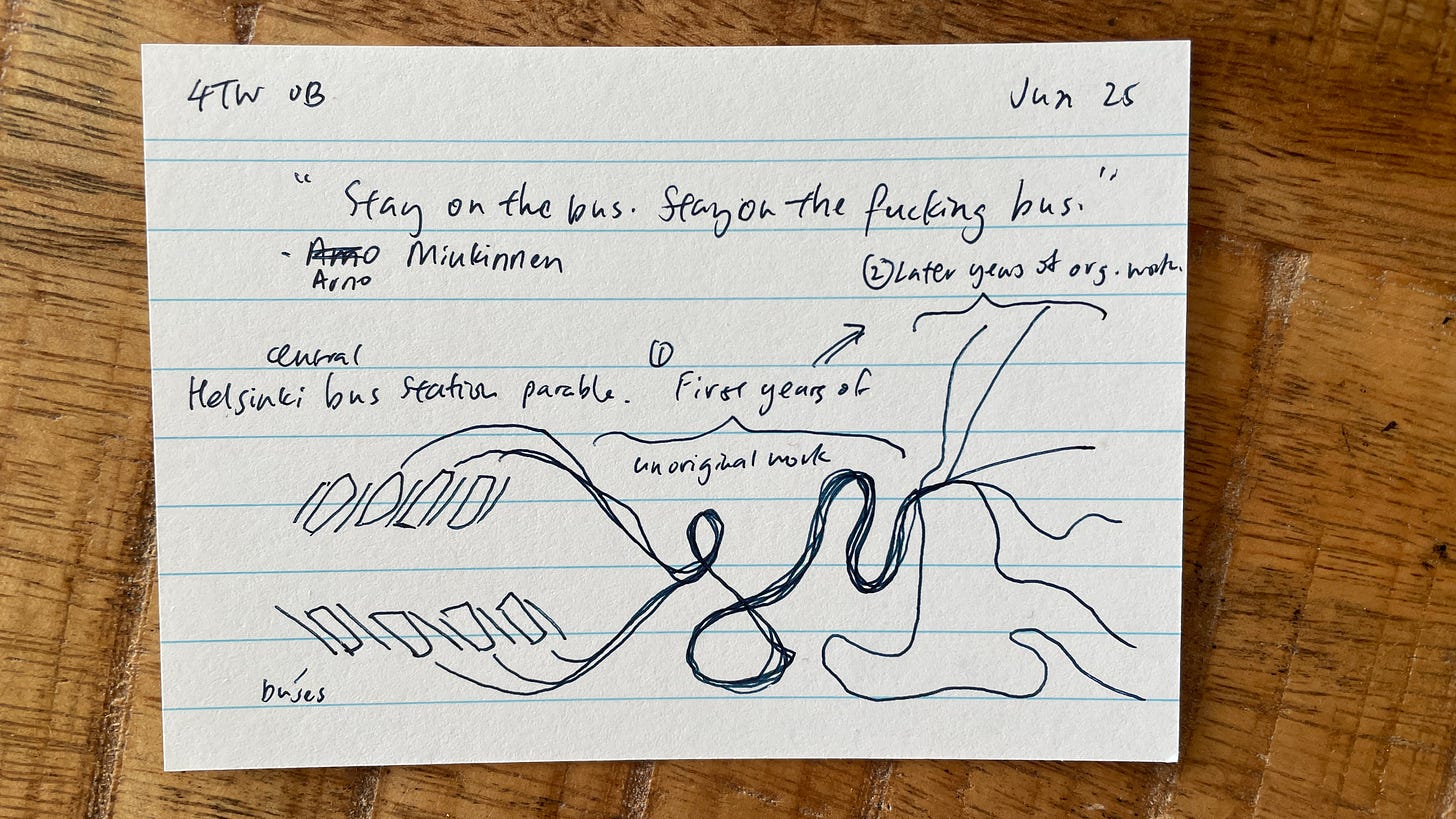 4TW OB
Jun 25
"Stay on the bus. Stay on the fucking bus."
- Arno Minkinnen
Arno
② Later years of org. work.
central
Helsinki bus station parable.
① First years of
unoriginal work
buses